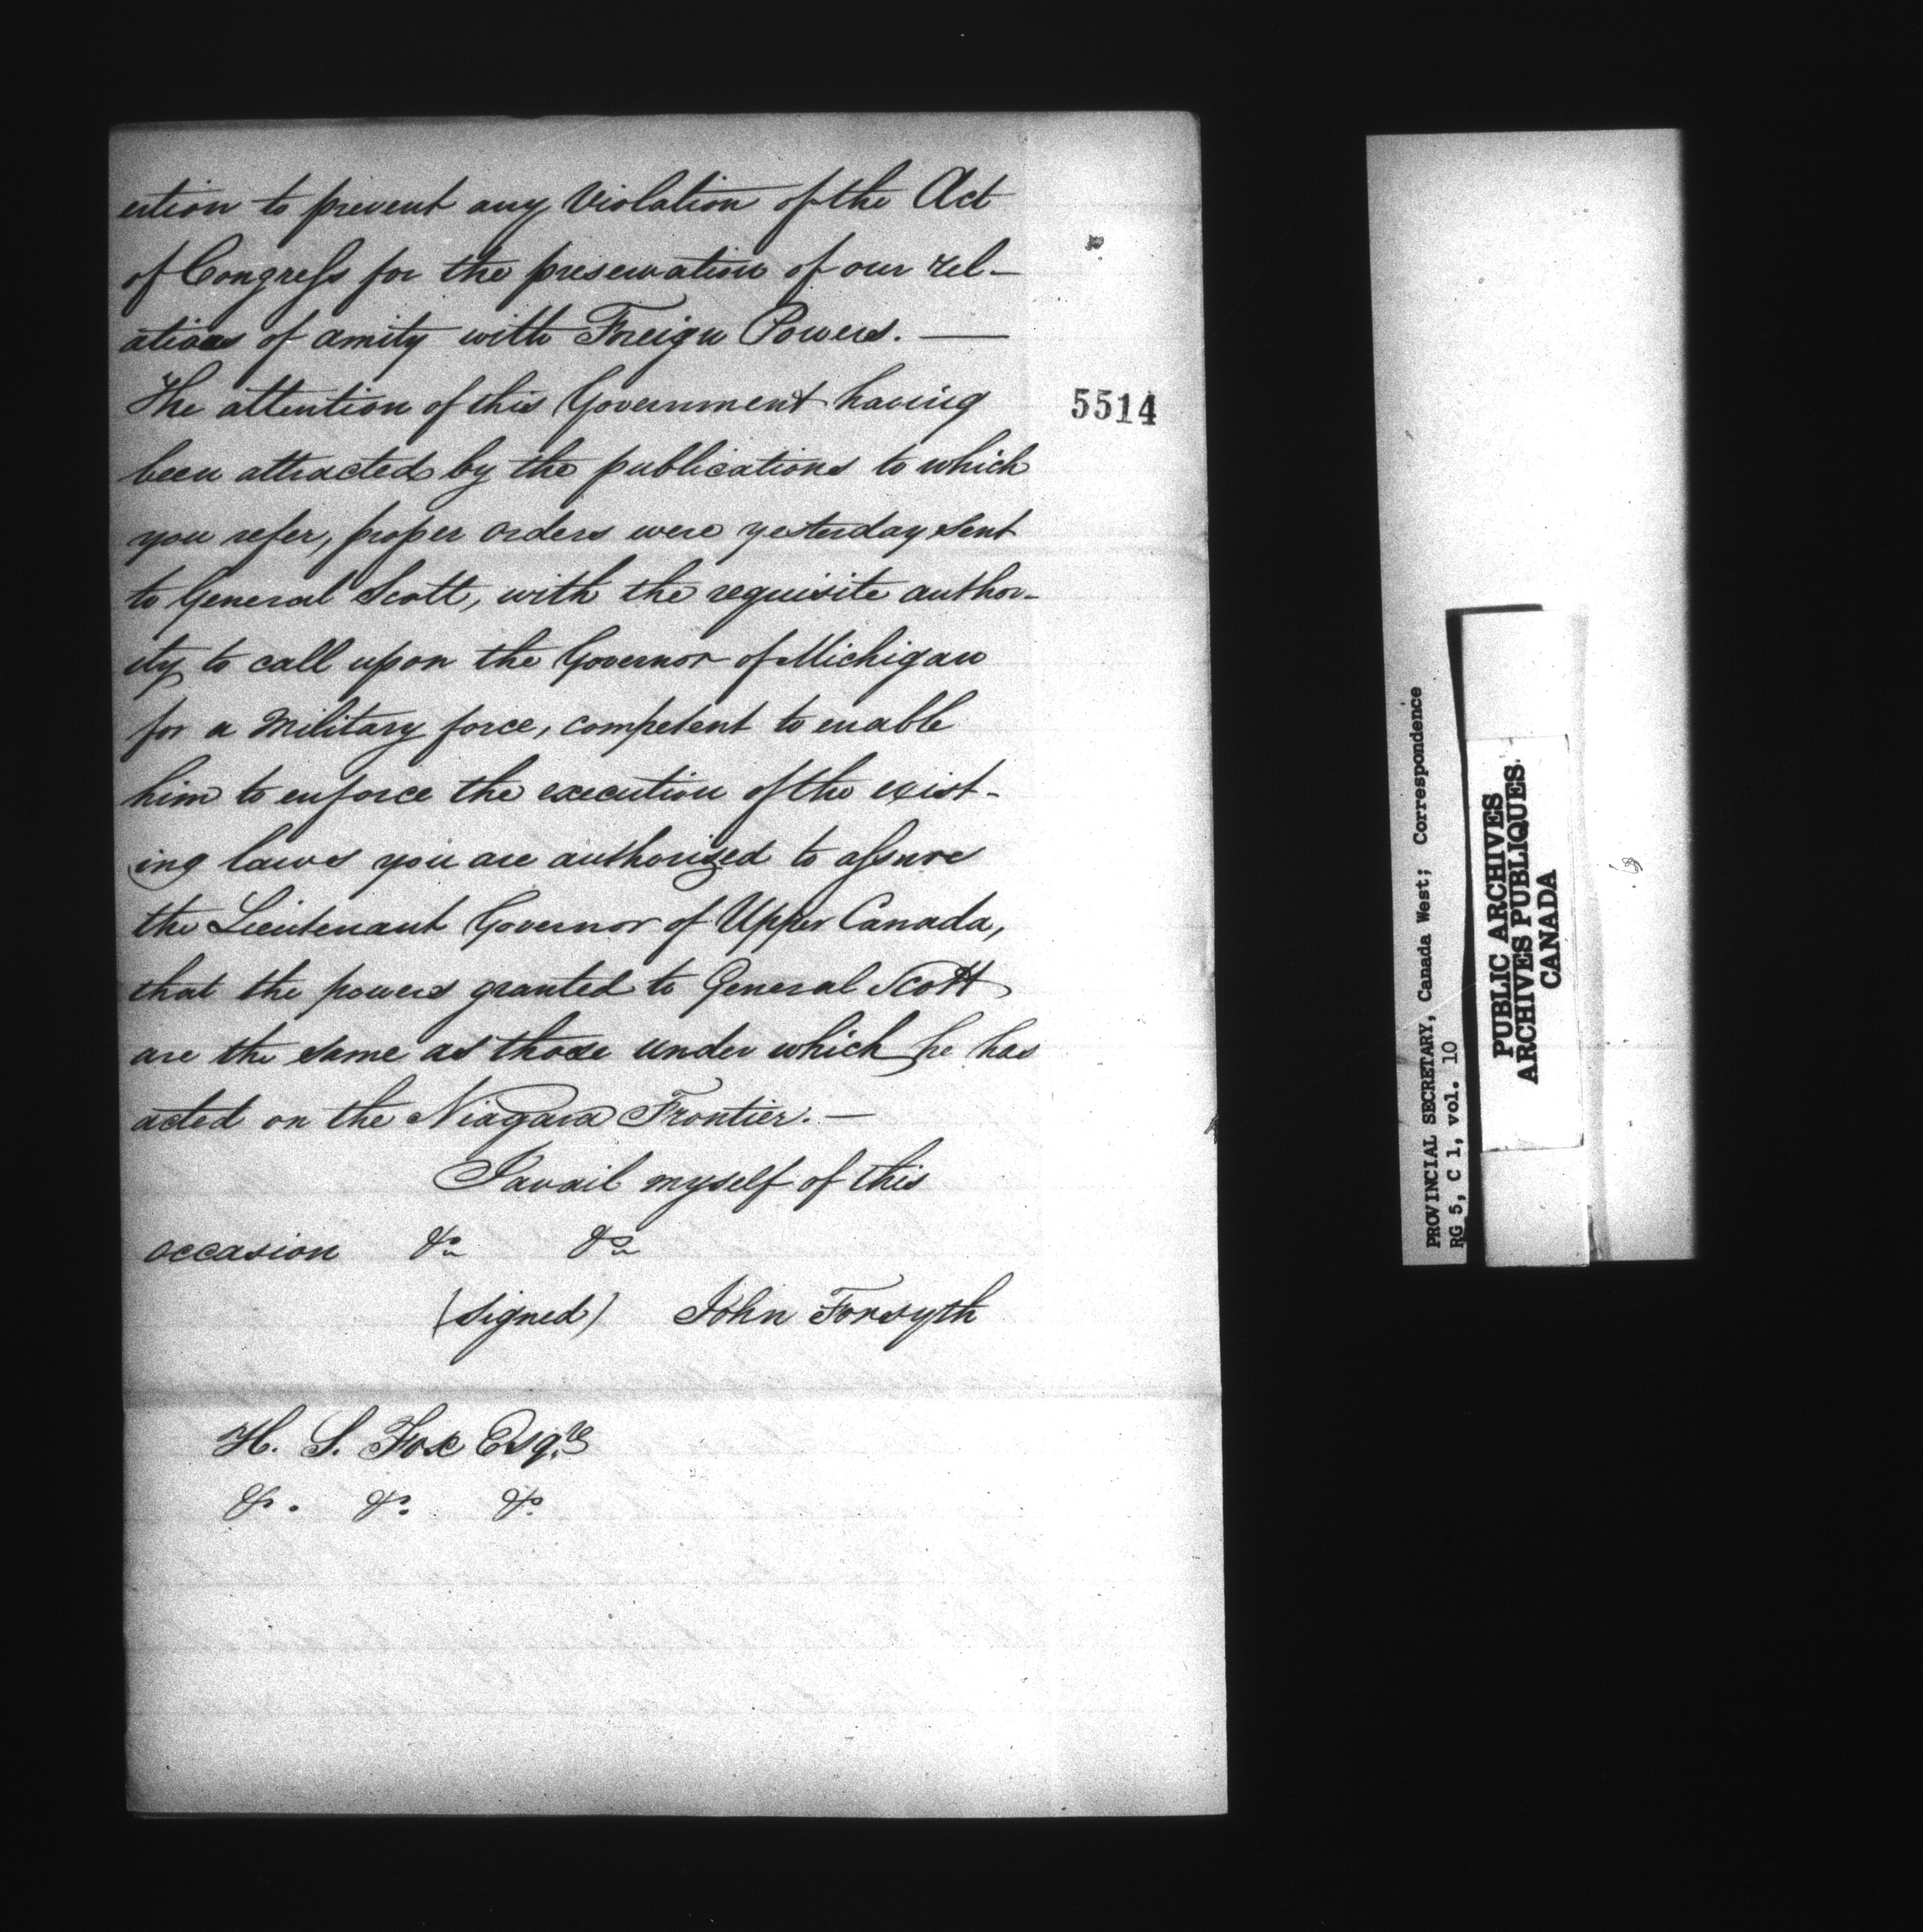 ertion to prevent any Violation of the Act
of Congress for the preservation of our rel-
ations of amity with Foreign Powers. —
The attention of this Government having
been attracted by the publications to which
you refer, proper orders were yesterday sent
to General Scott, with the requisite author-
ity to call upon the Governor of Michigan
for a Military force, competent to enable
him to enforce the execution of the exist-
ing laws you are authorized to assure
the Lieutenant Governor of Upper Canada,
that the powers granted to General Scott
are the same as those under which he has
acted on the Niagara Frontier. —
I avail myself of this
occasion &c &c
(signed) John Forsyth
H. S. Fox Esqre
&c. &c. &c.
5514
PROVINCIAL SECRETARY, Canada West; Correspondence
RG 5, C 1, vol. 10
PUBLIC ARCHIVES
ARCHIVES PUBLIQUES
CANADA